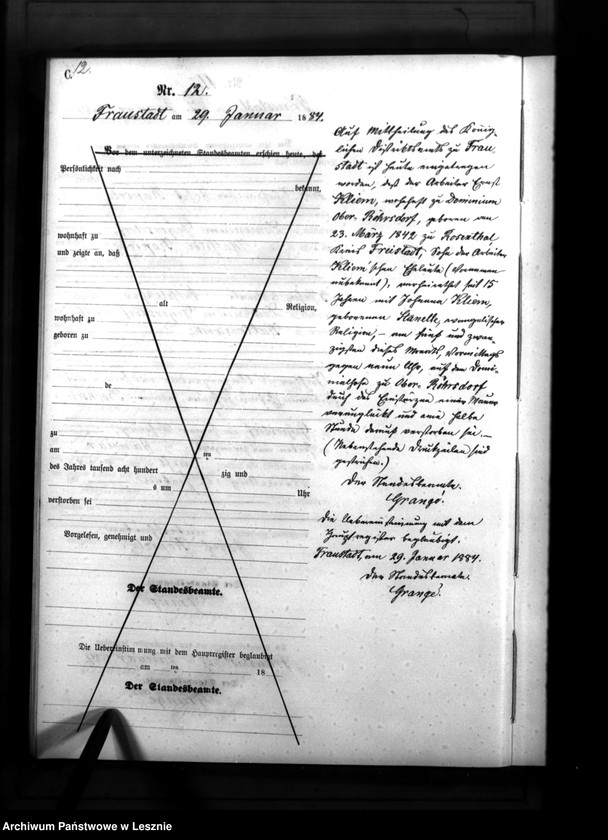 C.
12.
Nr. 12.
Fraustadt am 29. Januar 1884.
Vor dem unterzeichneten Standesbeamten erschien heute, der
Persönlichkeit nach
bekannt,
wohnhaft zu
und zeigte an, daß
alt Religion,
wohnhaft zu
geboren zu
de
zu
am ten
des Jahres tausend acht hundert zig und
s um Uhr
verstorben sei
Vorgelesen, genehmigt und
Der Standesbeamte.
Die Uebereinstimmung mit dem Hauptregister beglaubigt
am ten 18
Der Standesbeamte.
Auf Mittheilung des König
lichen Distriktsamts zu Frau
stadt ist heute eingetragen
worden, daß der Arbeiter Ernst
Kliem, wohnhaft zu Dominium
Ober Röhrsdorf, geboren am
23. März 1842 zu Rosenthal
Kreis Freistadt, Sohn der Arbeiter
Kliem'schen Eheleute (Vornamen
unbekannt), verheirathet seit 15
Jahren mit Johanna Kliem,
geborenen evangelischer
Religion, – am fünf und zwan
zigsten dieses Monats, Vormittags
gegen neun Uhr, auf dem Domi-
nialhofe zu Ober Röhrsdorf
durch das Einstürzen einer Mauer
verunglückt und eine halbe
Stunde darauf verstorben sei. –
(Nebenstehende Druckzeilen sind
gestrichen.)
Der Standesbeamte.
Grangé.
Die Uebereinstimmung mit dem
Hauptregister beglaubigt.
Fraustadt, am 29. Januar 1884.
Der Standesbeamte.
Grangé.
Archiwum Państwowe w Lesznie